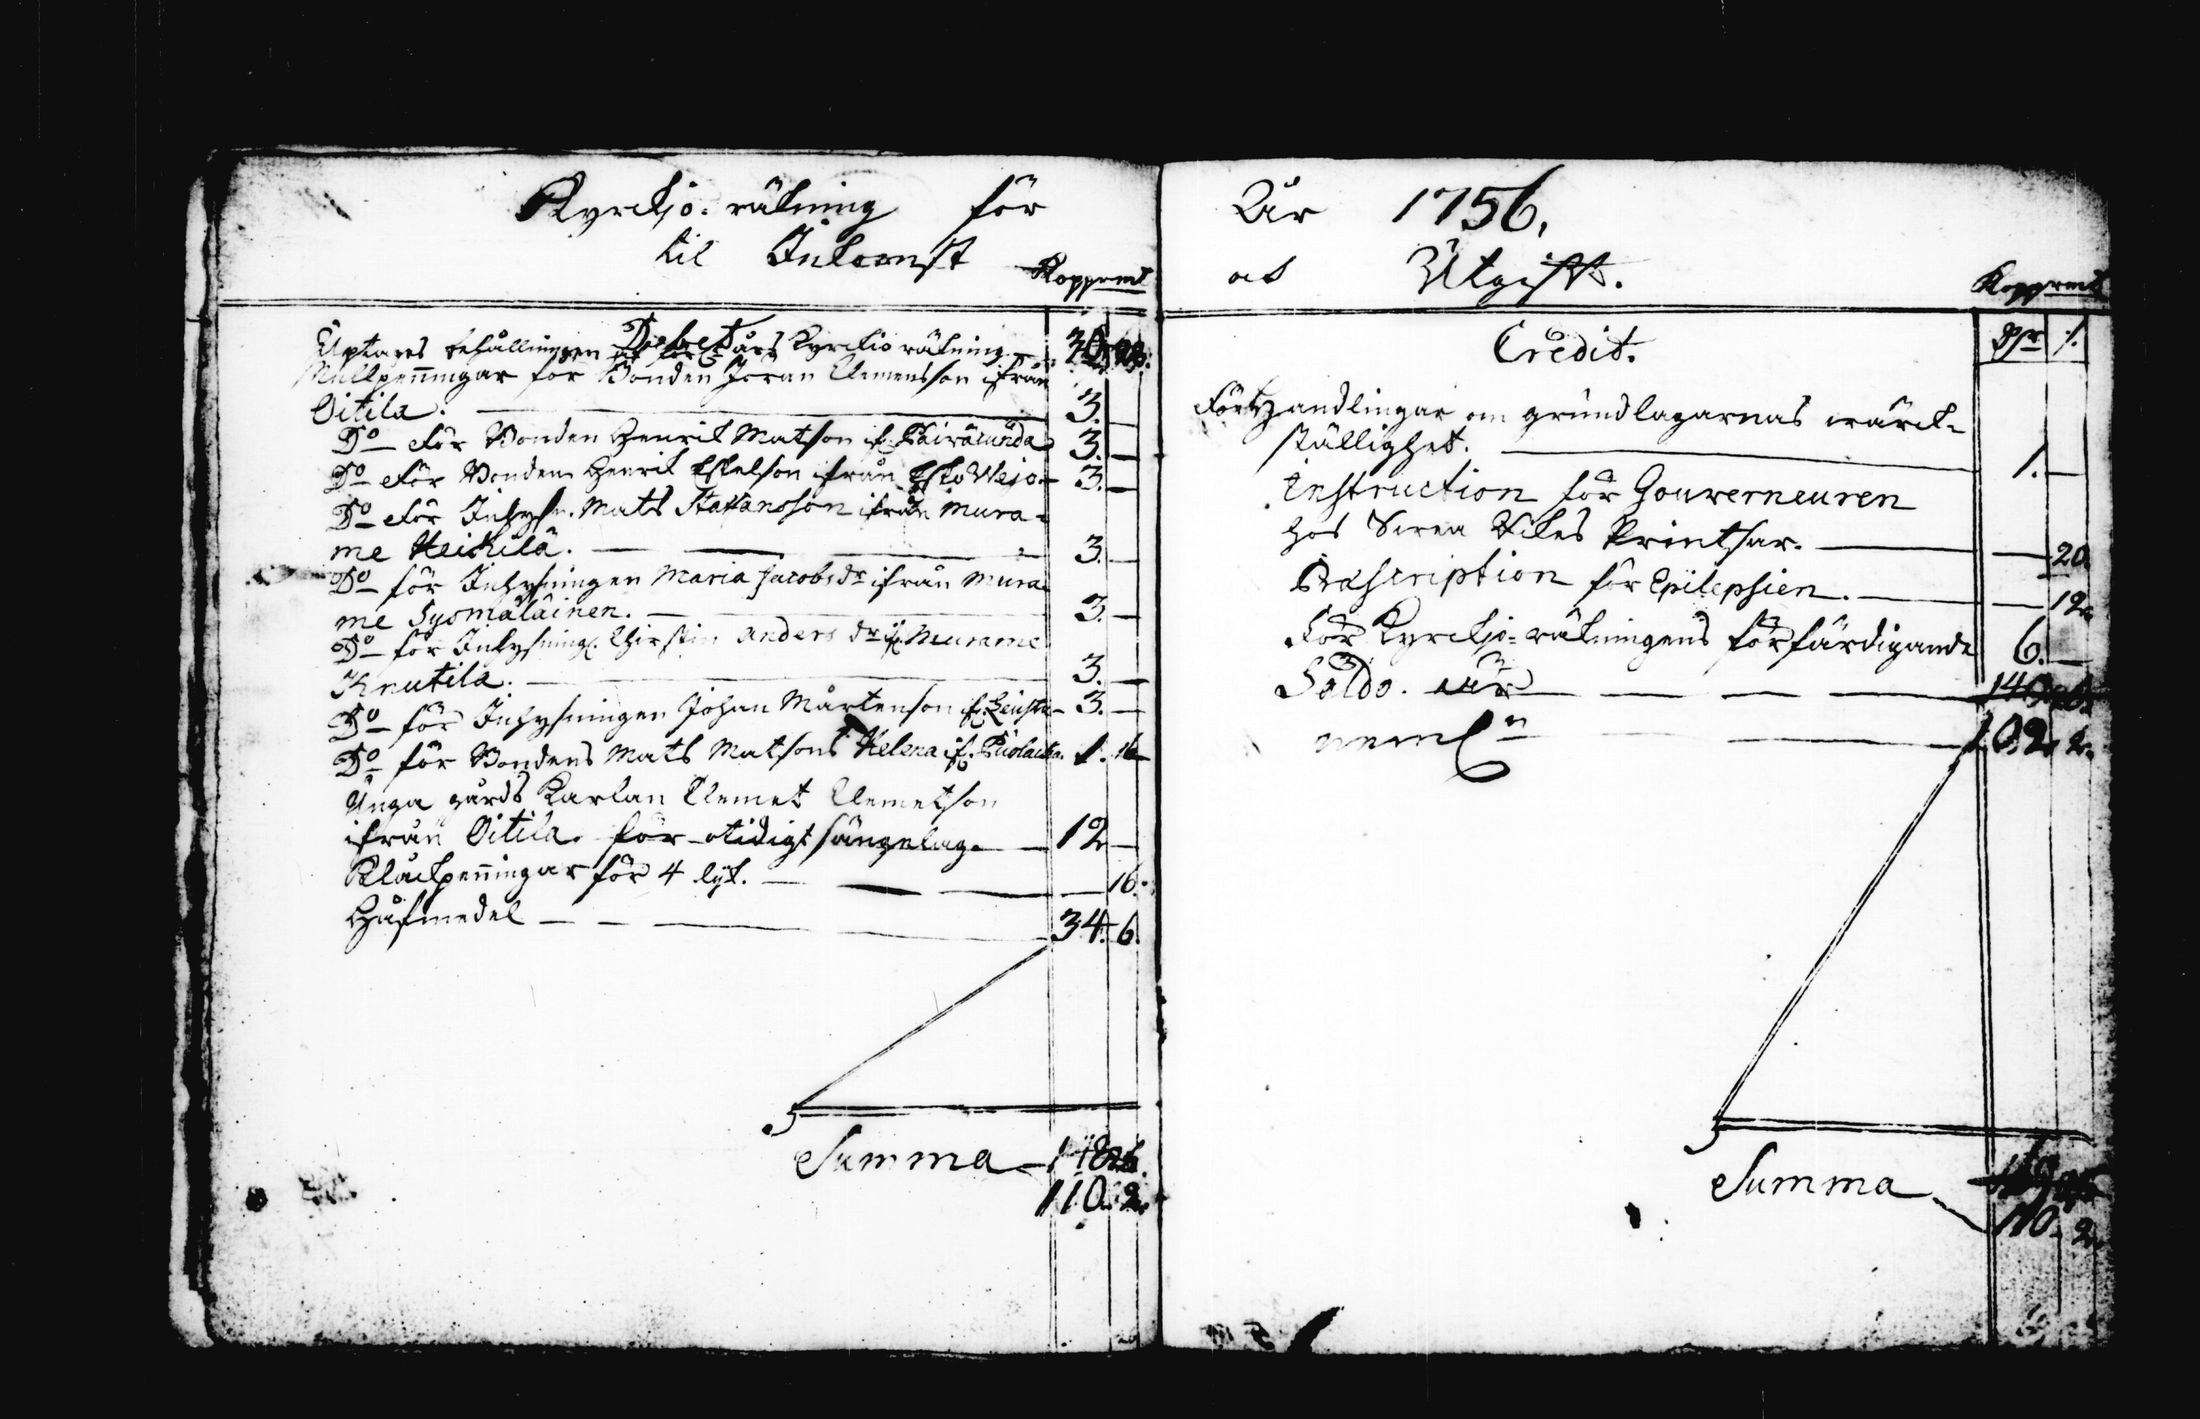 Kyrckjo-räkning för
til Inkomst
Koppremt
Debet
Uptages behållningen af förl. åhrs Kyrckio räkning 30. 28.
Mullpenningar för Bonden Jöran Clemensson ifrån
Oitila. 3. —
Do för Bonden Henrik Matson if. 3. —
Do för Bonden Henrik Eskelson ifrån 3. —
Do för Inhyse. Mats Staffansson ifrån Mura-
me Heickilä. 3. —
Do för Inhysningen Maria Jacobsdr ifrån Mura-
me Syömäläinen. 3. —
Do för Inhysning. Chirstin Anders dr if. Murame
Knutila. 3. —
Do för Inhysningen Johan Mårtenson if. 3. —
Do för Bondens Mats Matsons Helena if. 1. 16
Unga gårds Karlan Clemet Clemetson
ifrån Oitila för otidigt sängelag 12 —
Klåckpenningar för 4 lijk. — 16.
Håfmedel 34. 6.
Summa 148 26.
110. 2.
Åhr 1756.
at Utgift.
Koppremt
Credit. Dlr /.
För Handlingar om grundlagarnas wärck-
ställighet. 1. —
Instruction för Gouverneuren
hos Svea Rikes Printsar. — 20.
Præscription för Epilepsien. — 12
För Kyrckjo-räkningens förfärdigande 6. —
Saldo. 140
102. 2.
Summa
110. 2.